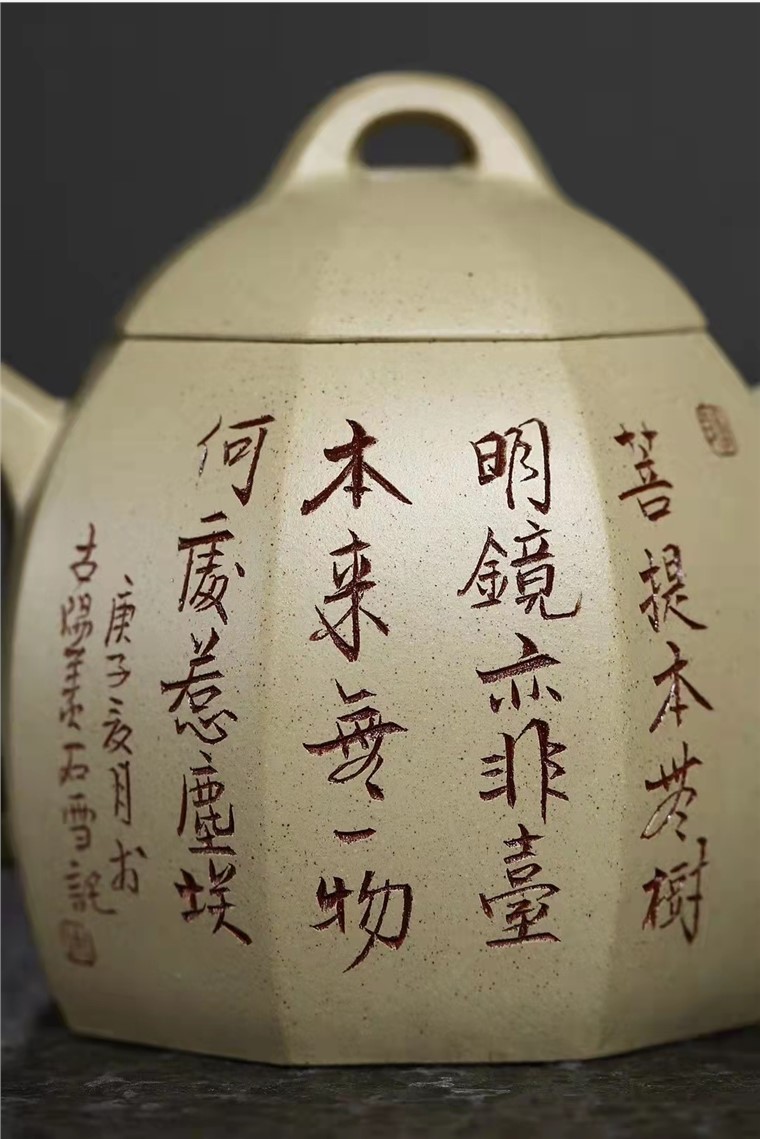 菩提本無樹
明鏡亦非臺
本来無一物
何處惹塵埃
庚子亥月於
古陽羨石雪記